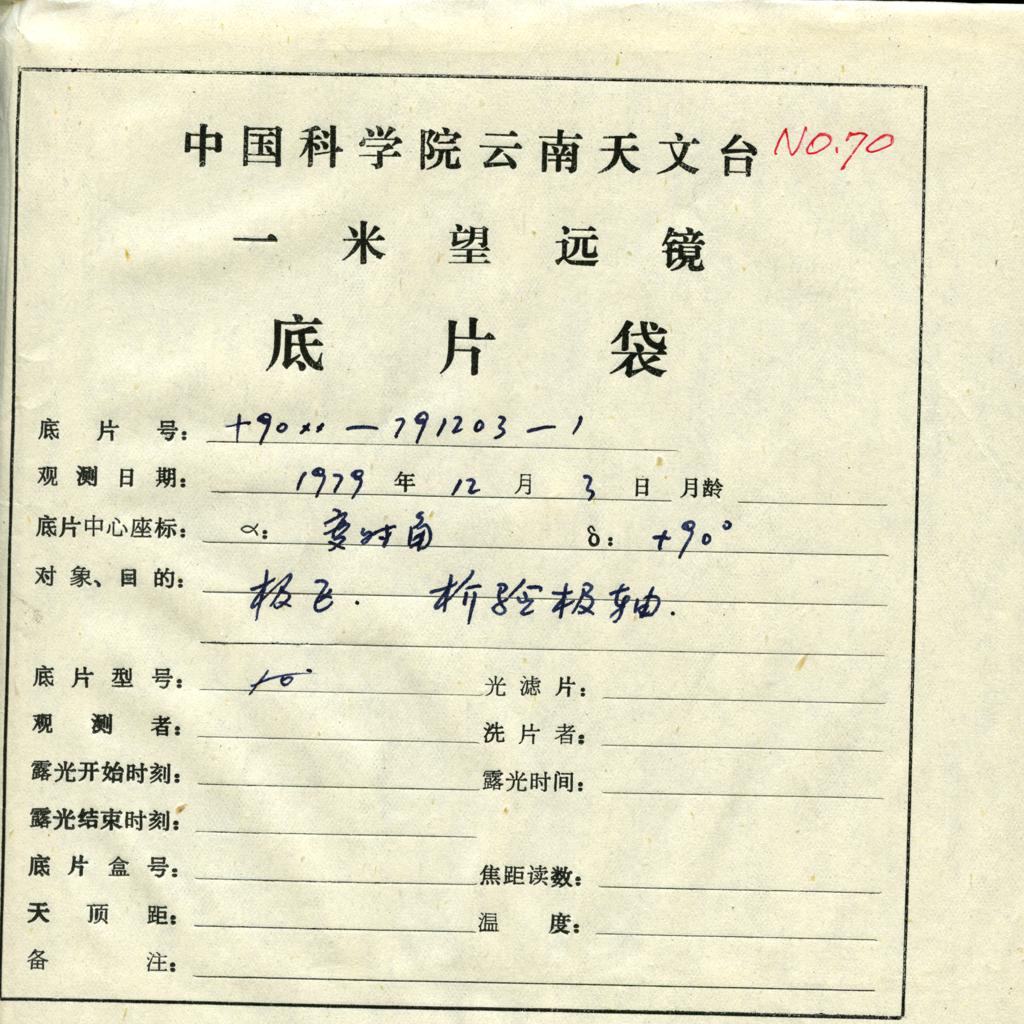 中国科学院云南天文台 NO.70
一米望远镜
底片袋
底片号: +90xx-791203-1
观测日期: 1979年12月3日 月龄
底片中心座标: α: 变时角 δ: +90°
对象、目的: 极区. 检验极轴.
底片型号: 光滤片:
观测者: 洗片者:
露光开始时刻: 露光时间:
露光结束时刻:
底片盒号: 焦距读数:
天顶距: 温度:
备注: